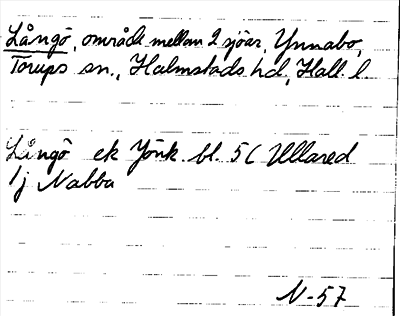 Långö, område mellan 2 sjöar, Ynnabo,
Torups sn., Halmstads hd., Hall. l.
Långö ek Jönk. bl. 5C Ullared
1j Nabba
N-57